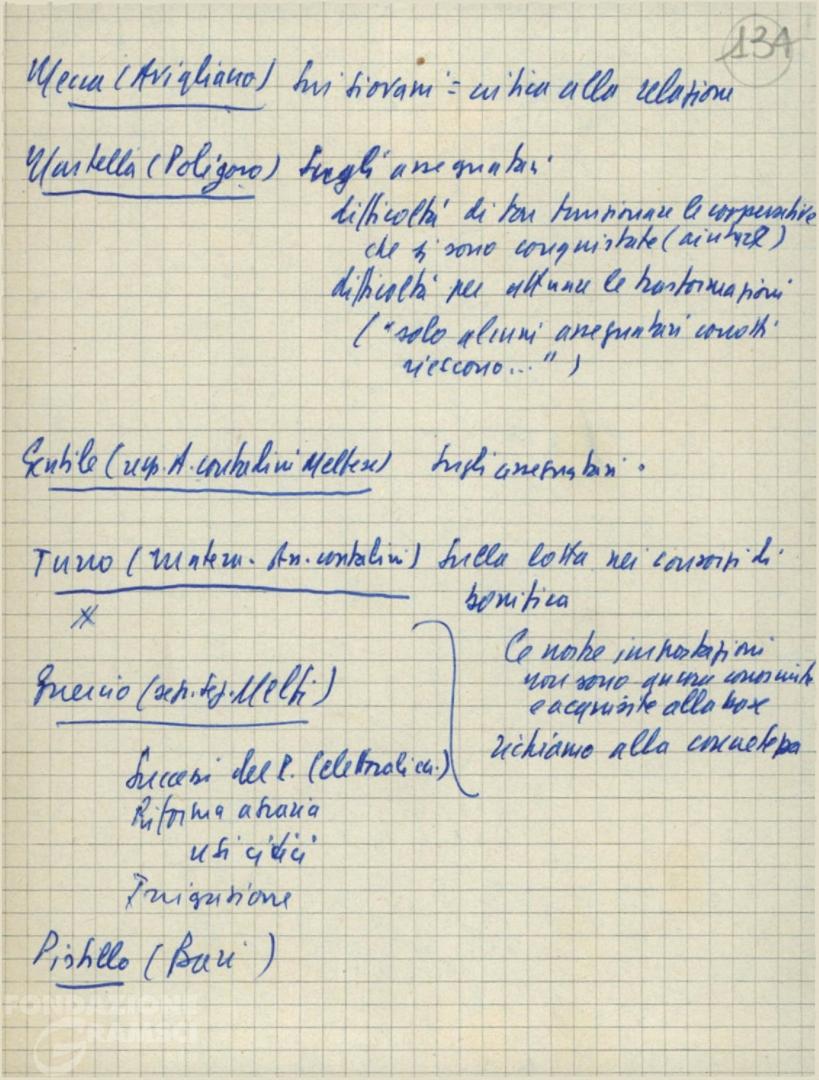 134
Mecca (Avigliano) Sui giovani = critica alla relazione
Martella (Poligoro) Sugli assegnatari
difficoltà di far funzionare le cooperative
che si sono conquistate (aiutare)
difficoltà per attuare le trasformazioni
("solo alcuni assegnatari
riescono...")
Gentile (resp. A. contadini Meltese) Sugli assegnatari.
Turro (Matera. Ass. contadini) Sulla lotta nei consorzi di
bonifica
Le nostre impostazioni
non sono ancora conosciute
e acquisite alla base
richiamo alla concretezza
(Melfi)
Successi del P. (elettorali)
Riforma agraria
usi civici
Irrigazione
Pistillo (Bari)
FONDAZIONE
GRAMSCI